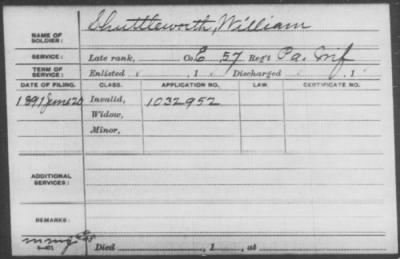 NAME OF SOLDIER: Shuttleworth, William
SERVICE: Late rank, Co. E 57 Reg't Pa. Inf
TERM OF SERVICE: Enlisted , 1 Discharged , 1
DATE OF FILING. CLASS. APPLICATION NO. LAW. CERTIFICATE NO.
1891 June 20 Invalid, 1032952
Widow,
Minor,
ADDITIONAL SERVICES:
REMARKS:
Died , 1 , at